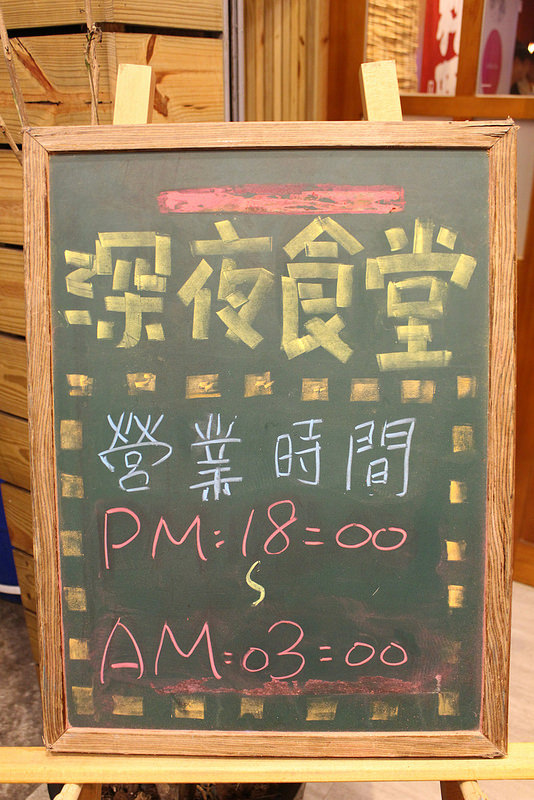 深夜食堂
營業時間
PM:18:00
∫
AM:03:00